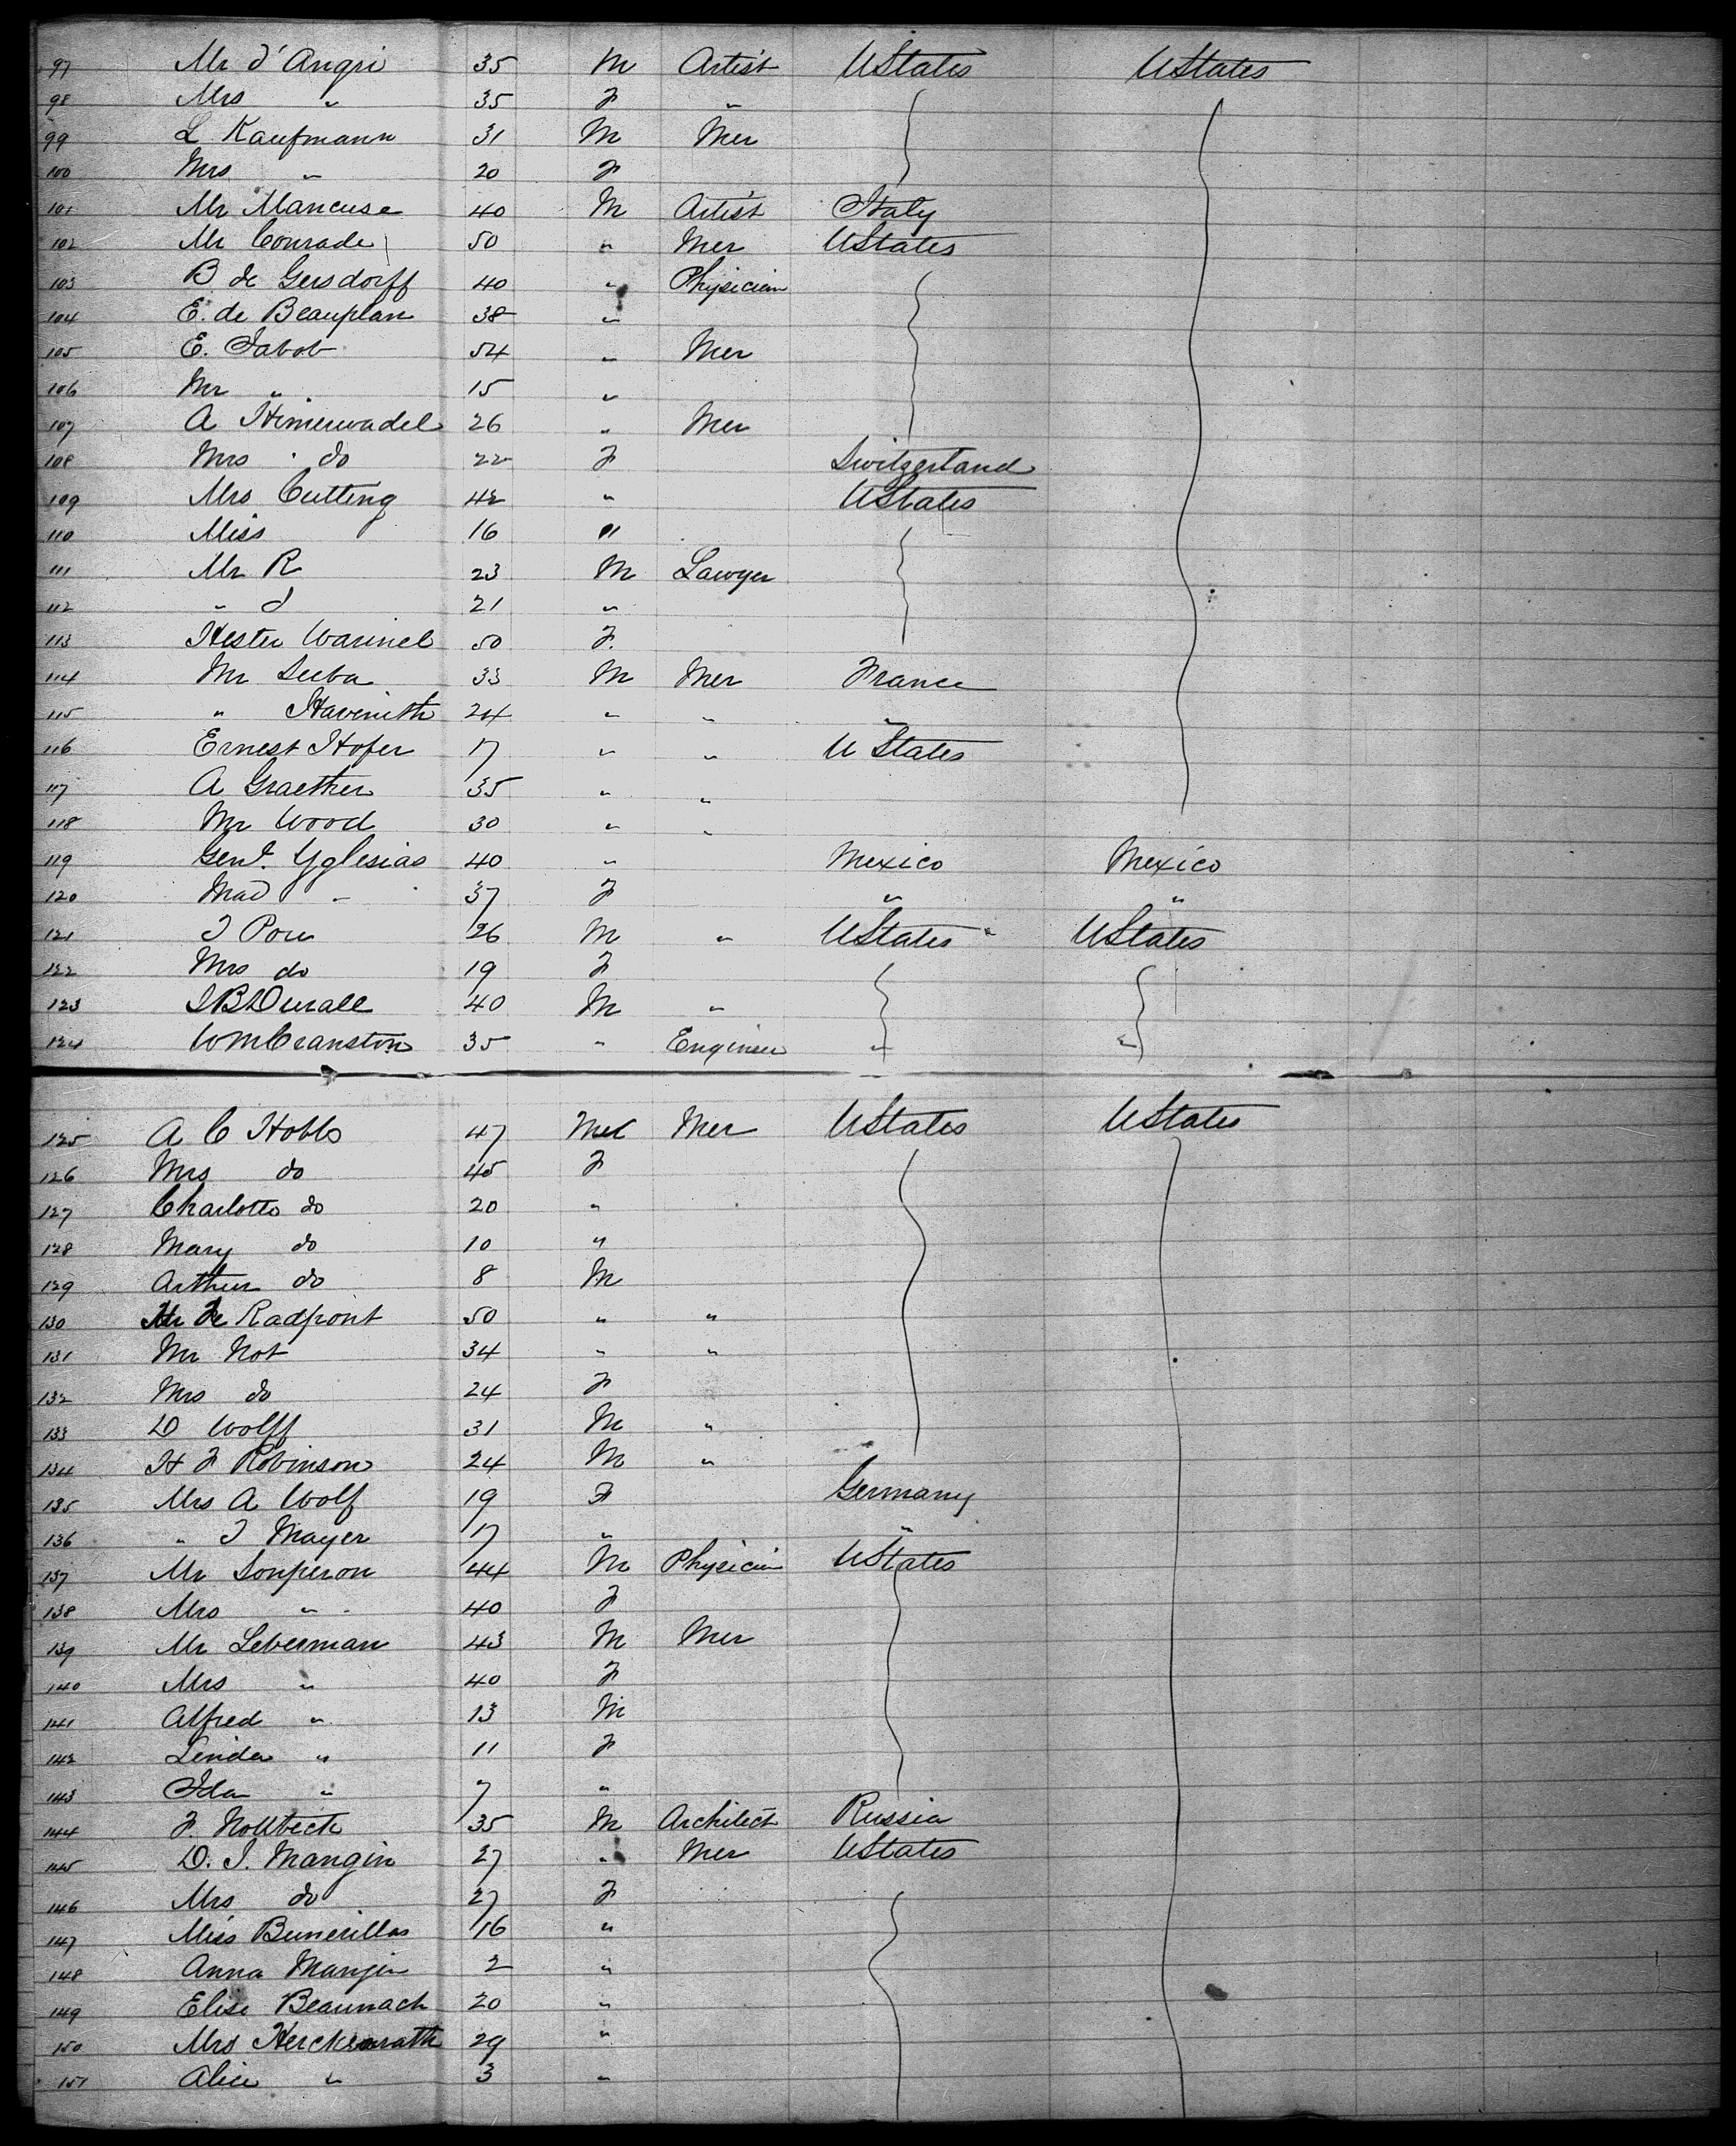 97 Mr d'Angri 35 M Artist UStates UStates
98 Mrs " 35 F "
99 L Kaufmann 31 M Mer
100 Mrs " 20 F
101 Mr Mancuse 40 M Artist Italy
102 Mr Conrade 50 " Mer UStates
103 B de Gersdorff 40 " Physician
104 E. de Beauplan 38 "
105 E. Jabob 54 " Mer
106 Mr " 15 "
107 A Himerwadel 26 " Mer
108 Mrs do 22 F Switzerland
109 Mrs Cutting 42 " UStates
110 Miss 16 "
111 Mr R 23 M Lawyer
112 " d 21 "
113 Hester Warinel 50 F.
114 Mr Seeba 33 M Mer France
115 " Havenith 24 " " "
116 Ernest Hofer 17 " " U States
117 A Graether 35 " "
118 Mr Wood 30 " "
119 Genl. Yglesias 40 " Mexico Mexico
120 Mad " 37 F " "
121 J Pou 26 M " UStates " UStates
122 Mrs do 19 F
123 J B Durall 40 M "
124 Wm Cranston 35 " Engineer " "
125 A C Hobbs 47 Mal Mer UStates UStates
126 Mrs do 45 F
127 Charlotte do 20 "
128 Mary do 10 "
129 Arthur do 8 M
130 Mr de Radpont 50 " "
131 Mr Not 34 " "
132 Mrs do 24 F
133 D Wolff 31 M "
134 H F Robinson 24 M "
135 Mrs A Wolf 19 F Germany
136 " J Mayer 17 " "
137 Mr Sonperon 44 M Physician UStates
138 Mrs " 40 F
139 Mr Leberman 43 M Mer
140 Mrs " 40 F
141 Alfred " 13 M
142 Linda " 11 F
143 Ida " 7 "
144 F. Nollbeck 35 M Architect Russia
145 D. J. Mangin 27 " Mer UStates
146 Mrs do 27 F
147 Miss 16 "
148 Anna Manjin 2 "
149 Elise Beaunach 20 "
150 Mrs Herckenrath 29 "
151 Alice " 3 "